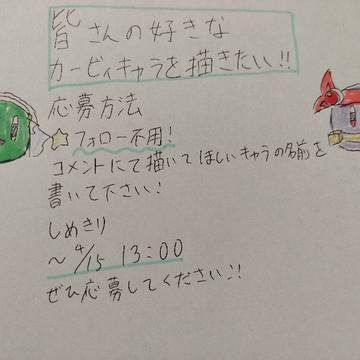 皆さんの好きな
カービィキャラを描きたい!!
応募方法
フォロー不用!
コメントにて描いてほしいキャラの名前を
書いて下さい!
しめきり
～4/15 13:00
ぜひ応募してください!!